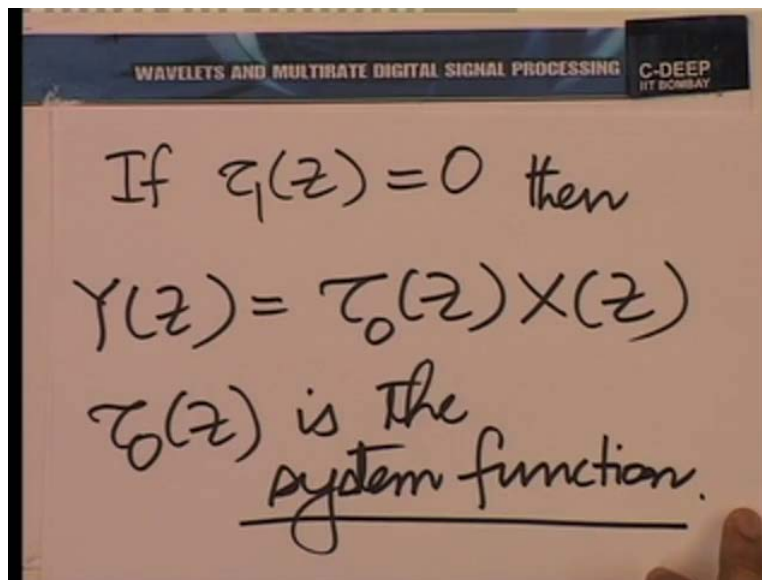 WAVELETS AND MULTIRATE DIGITAL SIGNAL PROCESSING
C-DEEP
IIT BOMBAY
If τ₁(Z) = 0 then
Y(Z) = τ₀(Z) X(Z)
τ₀(Z) is the
system function.